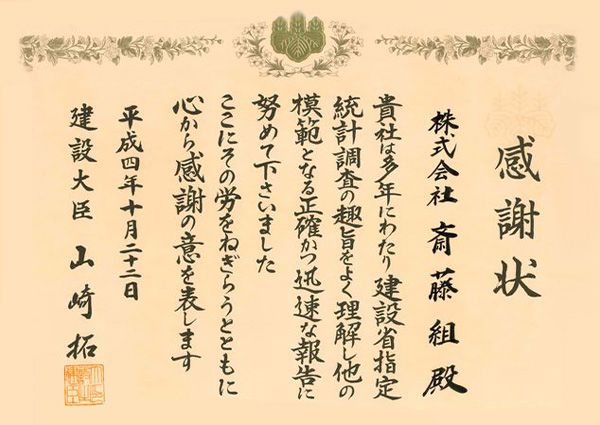 感謝状
株式会社 斎藤組殿
貴社は多年にわたり建設省指定
統計調査の趣旨をよく理解し他の
模範となる正確かつ迅速な報告に
努めて下さいました
ここにその労をねぎらうとともに
心から感謝の意を表します
平成四年十月二十二日
建設大臣 山崎拓